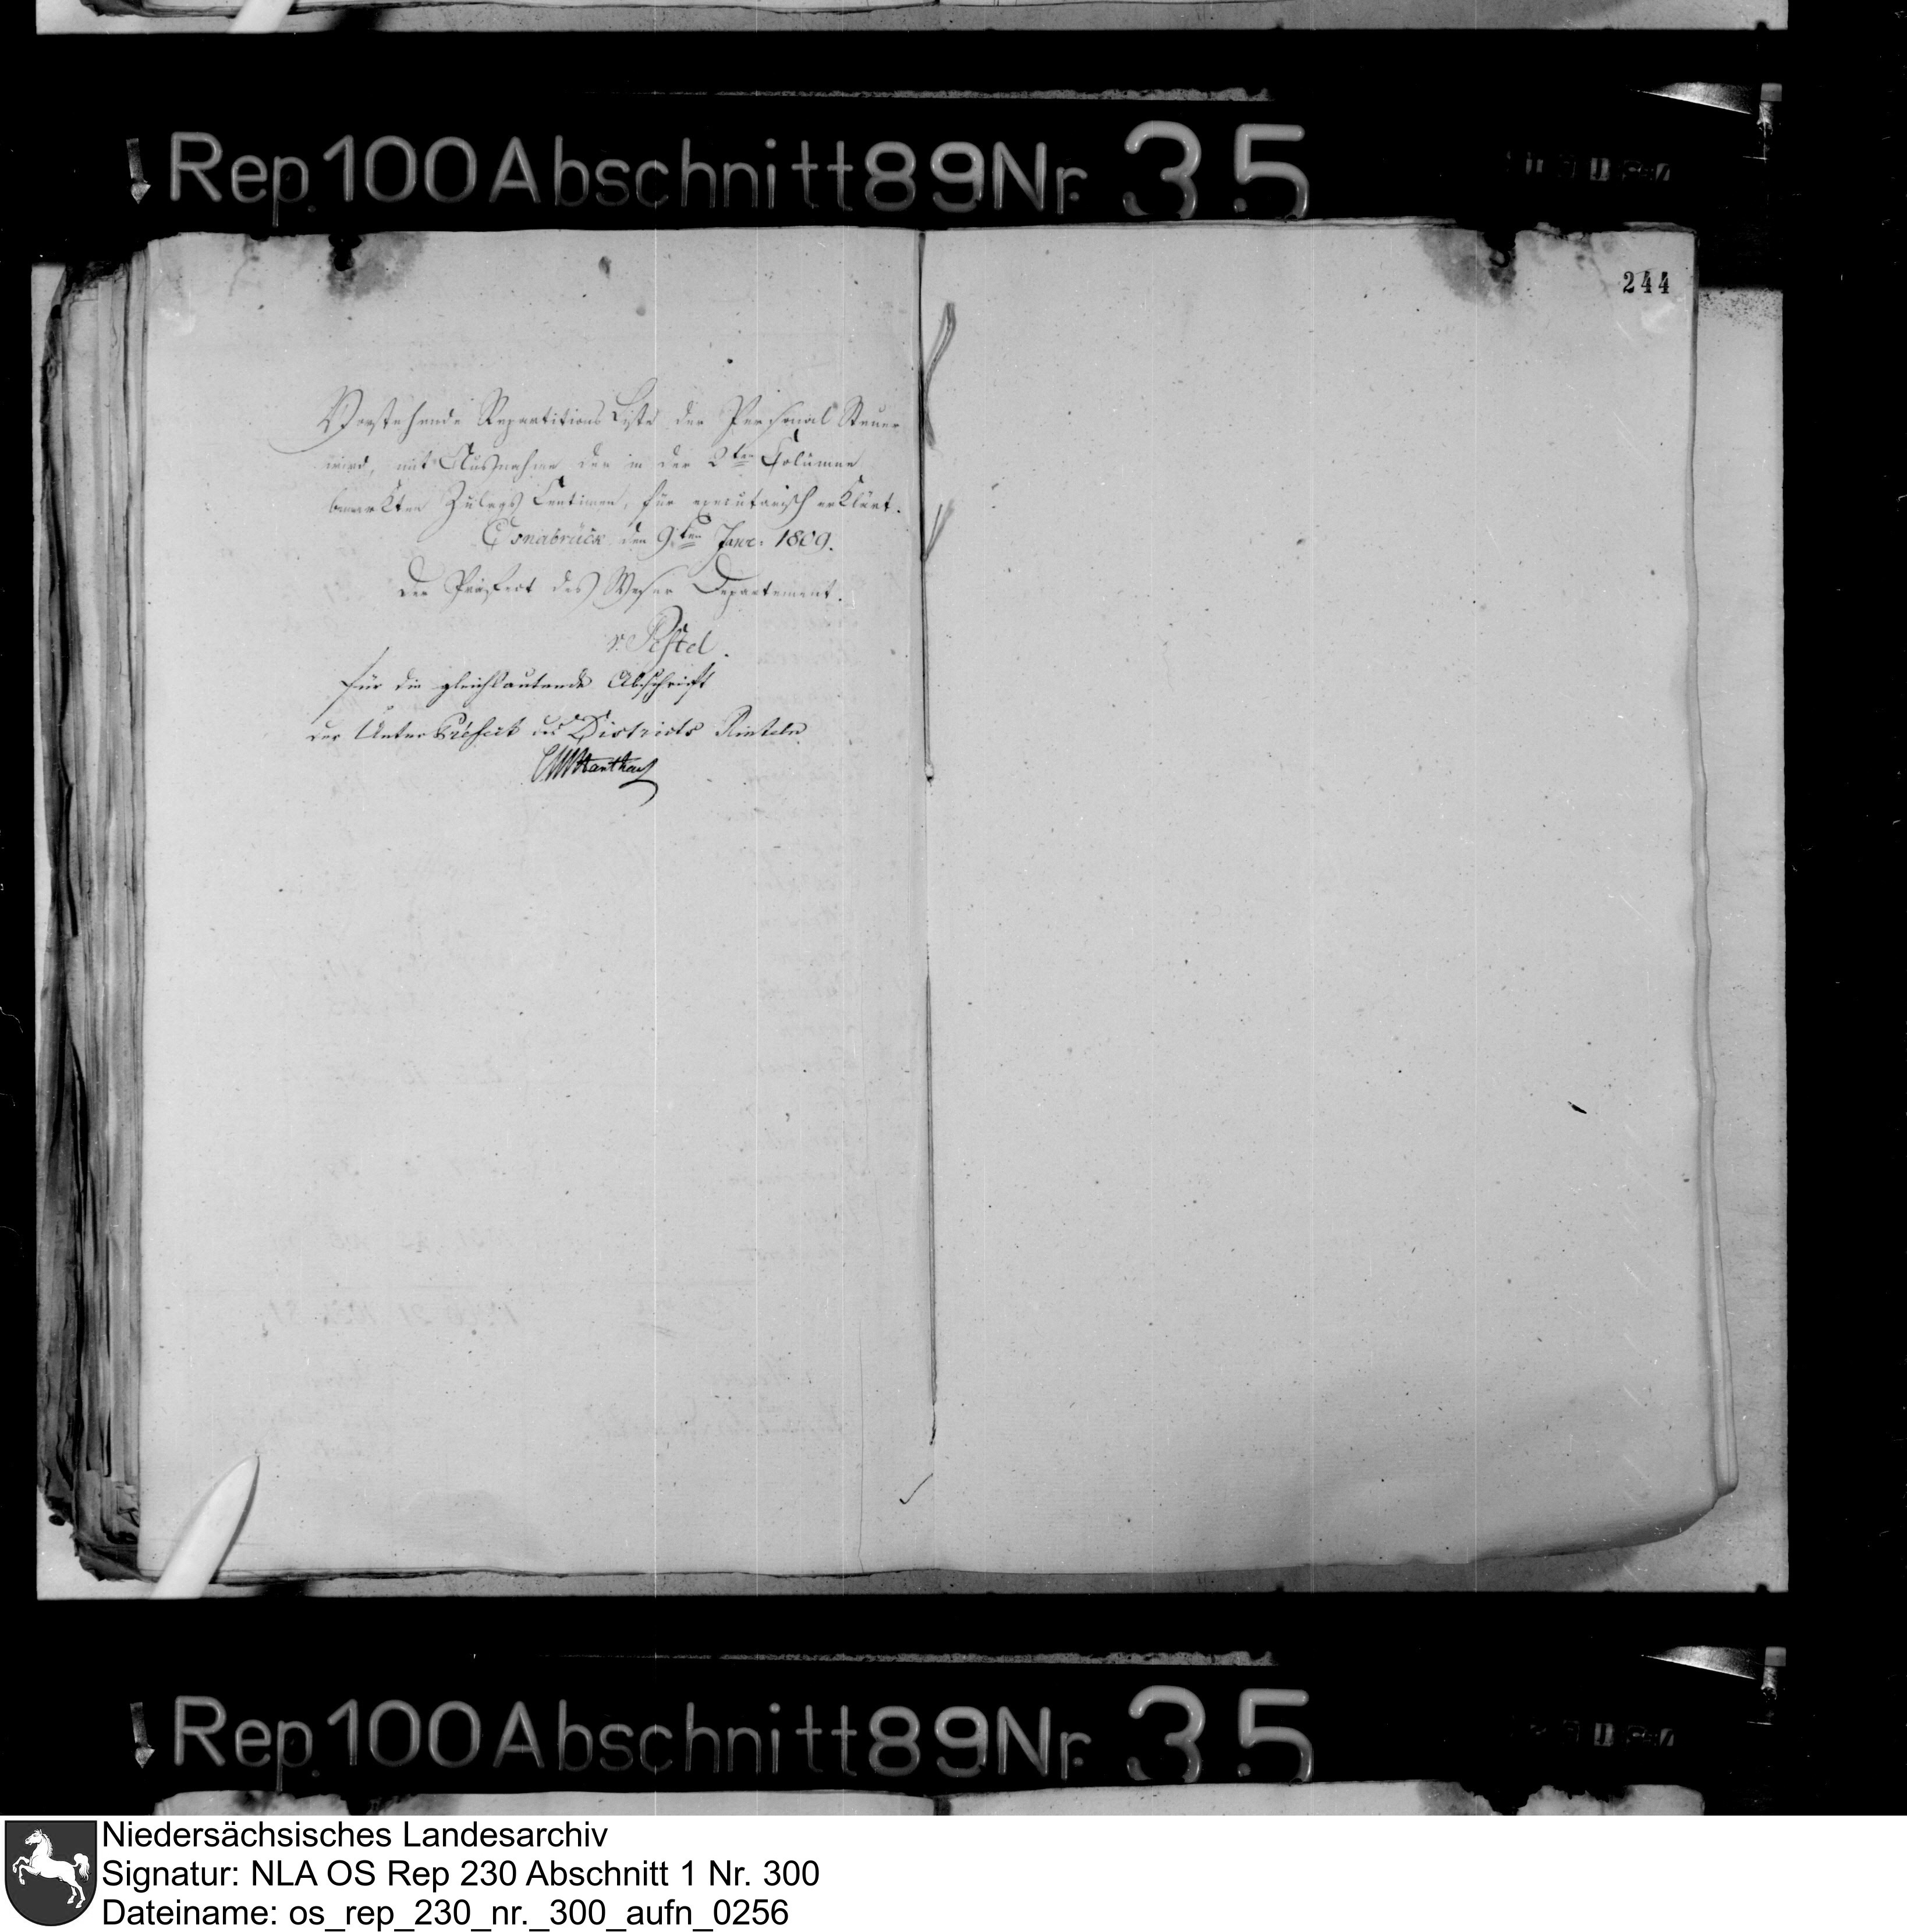 Rep. 100 Abschnitt 89 Nr. 35
244
Vorstehende Repartitions Liste der Personal Steuer
wird, mit Ausnahme der in der 2ten Columne
bemerkten Zulags Centimen, für executorisch erklärt.
Osnabrück den 9ten Janr: 1809.
Der Präfect des Weser Departement.
v. Pestel.
für die gleichlautende Abschrift
der Unter Präfect des Districts Rinteln
Rep. 100 Abschnitt 89 Nr. 35
Niedersächsisches Landesarchiv
Signatur: NLA OS Rep 230 Abschnitt 1 Nr. 300
Dateiname: os_rep_230_nr._300_aufn_0256